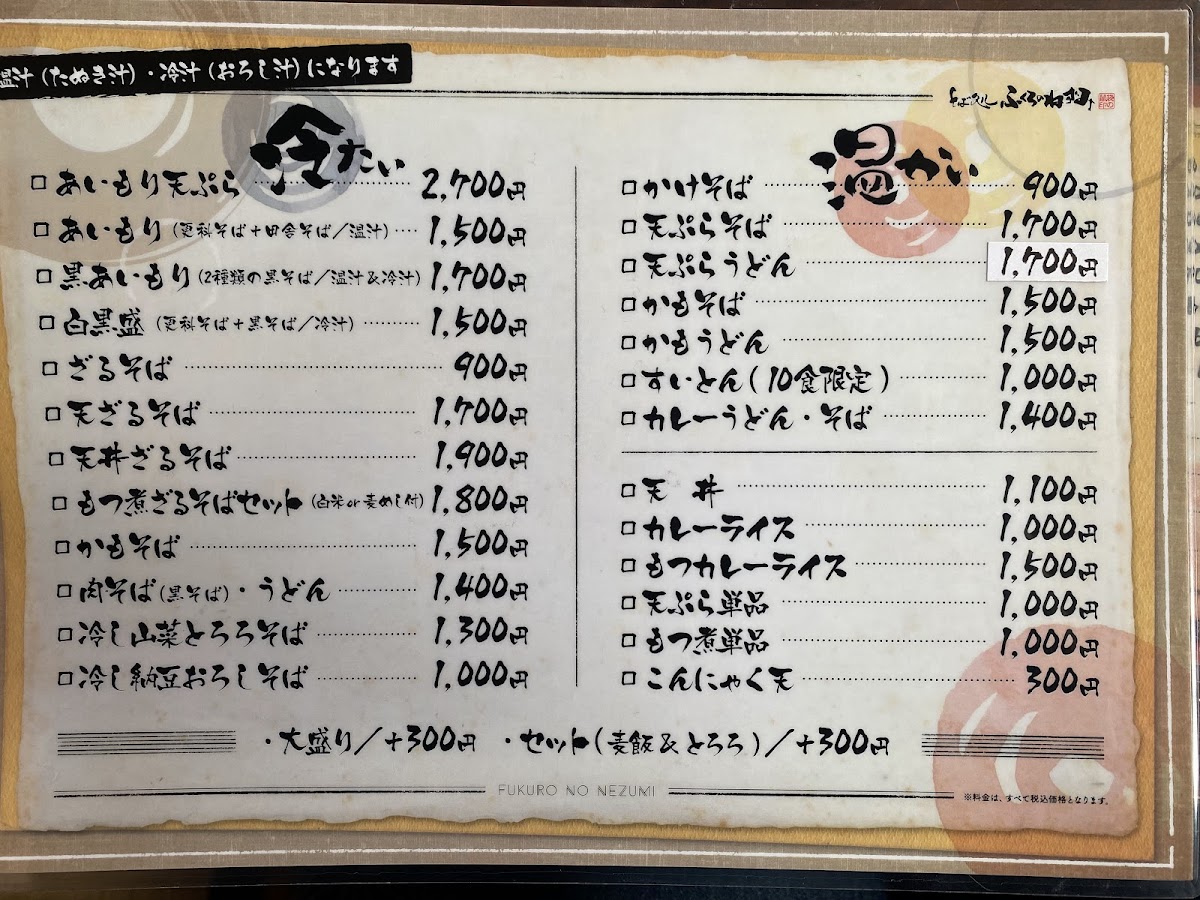 温汁（たぬき汁）・冷汁（おろし汁）になります
そば処 ふくろのねずみ
冷たい
□ あいもり天ぷら 2,700円
□ あいもり（更科そば＋田舎そば／温汁） 1,500円
□ 黒あいもり（2種類の黒そば／温汁＆冷汁） 1,700円
□ 白黒盛（更科そば＋黒そば／冷汁） 1,500円
□ ざるそば 900円
□ 天ざるそば 1,700円
□ 天丼ざるそば 1,900円
□ もつ煮ざるそばセット（白米or麦めし付） 1,800円
□ かもそば 1,500円
□ 肉そば（黒そば）・うどん 1,400円
□ 冷し山菜とろろそば 1,300円
□ 冷し納豆おろしそば 1,000円
温かい
□ かけそば 900円
□ 天ぷらそば 1,700円
□ 天ぷらうどん 1,700円
□ かもそば 1,500円
□ かもうどん 1,500円
□ すいとん（10食限定） 1,000円
□ カレーうどん・そば 1,400円
□ 天 丼 1,100円
□ カレーライス 1,000円
□ もつカレーライス 1,500円
□ 天ぷら単品 1,000円
□ もつ煮単品 1,000円
□ こんにゃく天 300円
・大盛り／＋300円 ・セット（麦飯＆とろろ）／＋300円
FUKURO NO NEZUMI
※料金は、すべて税込価格となります。